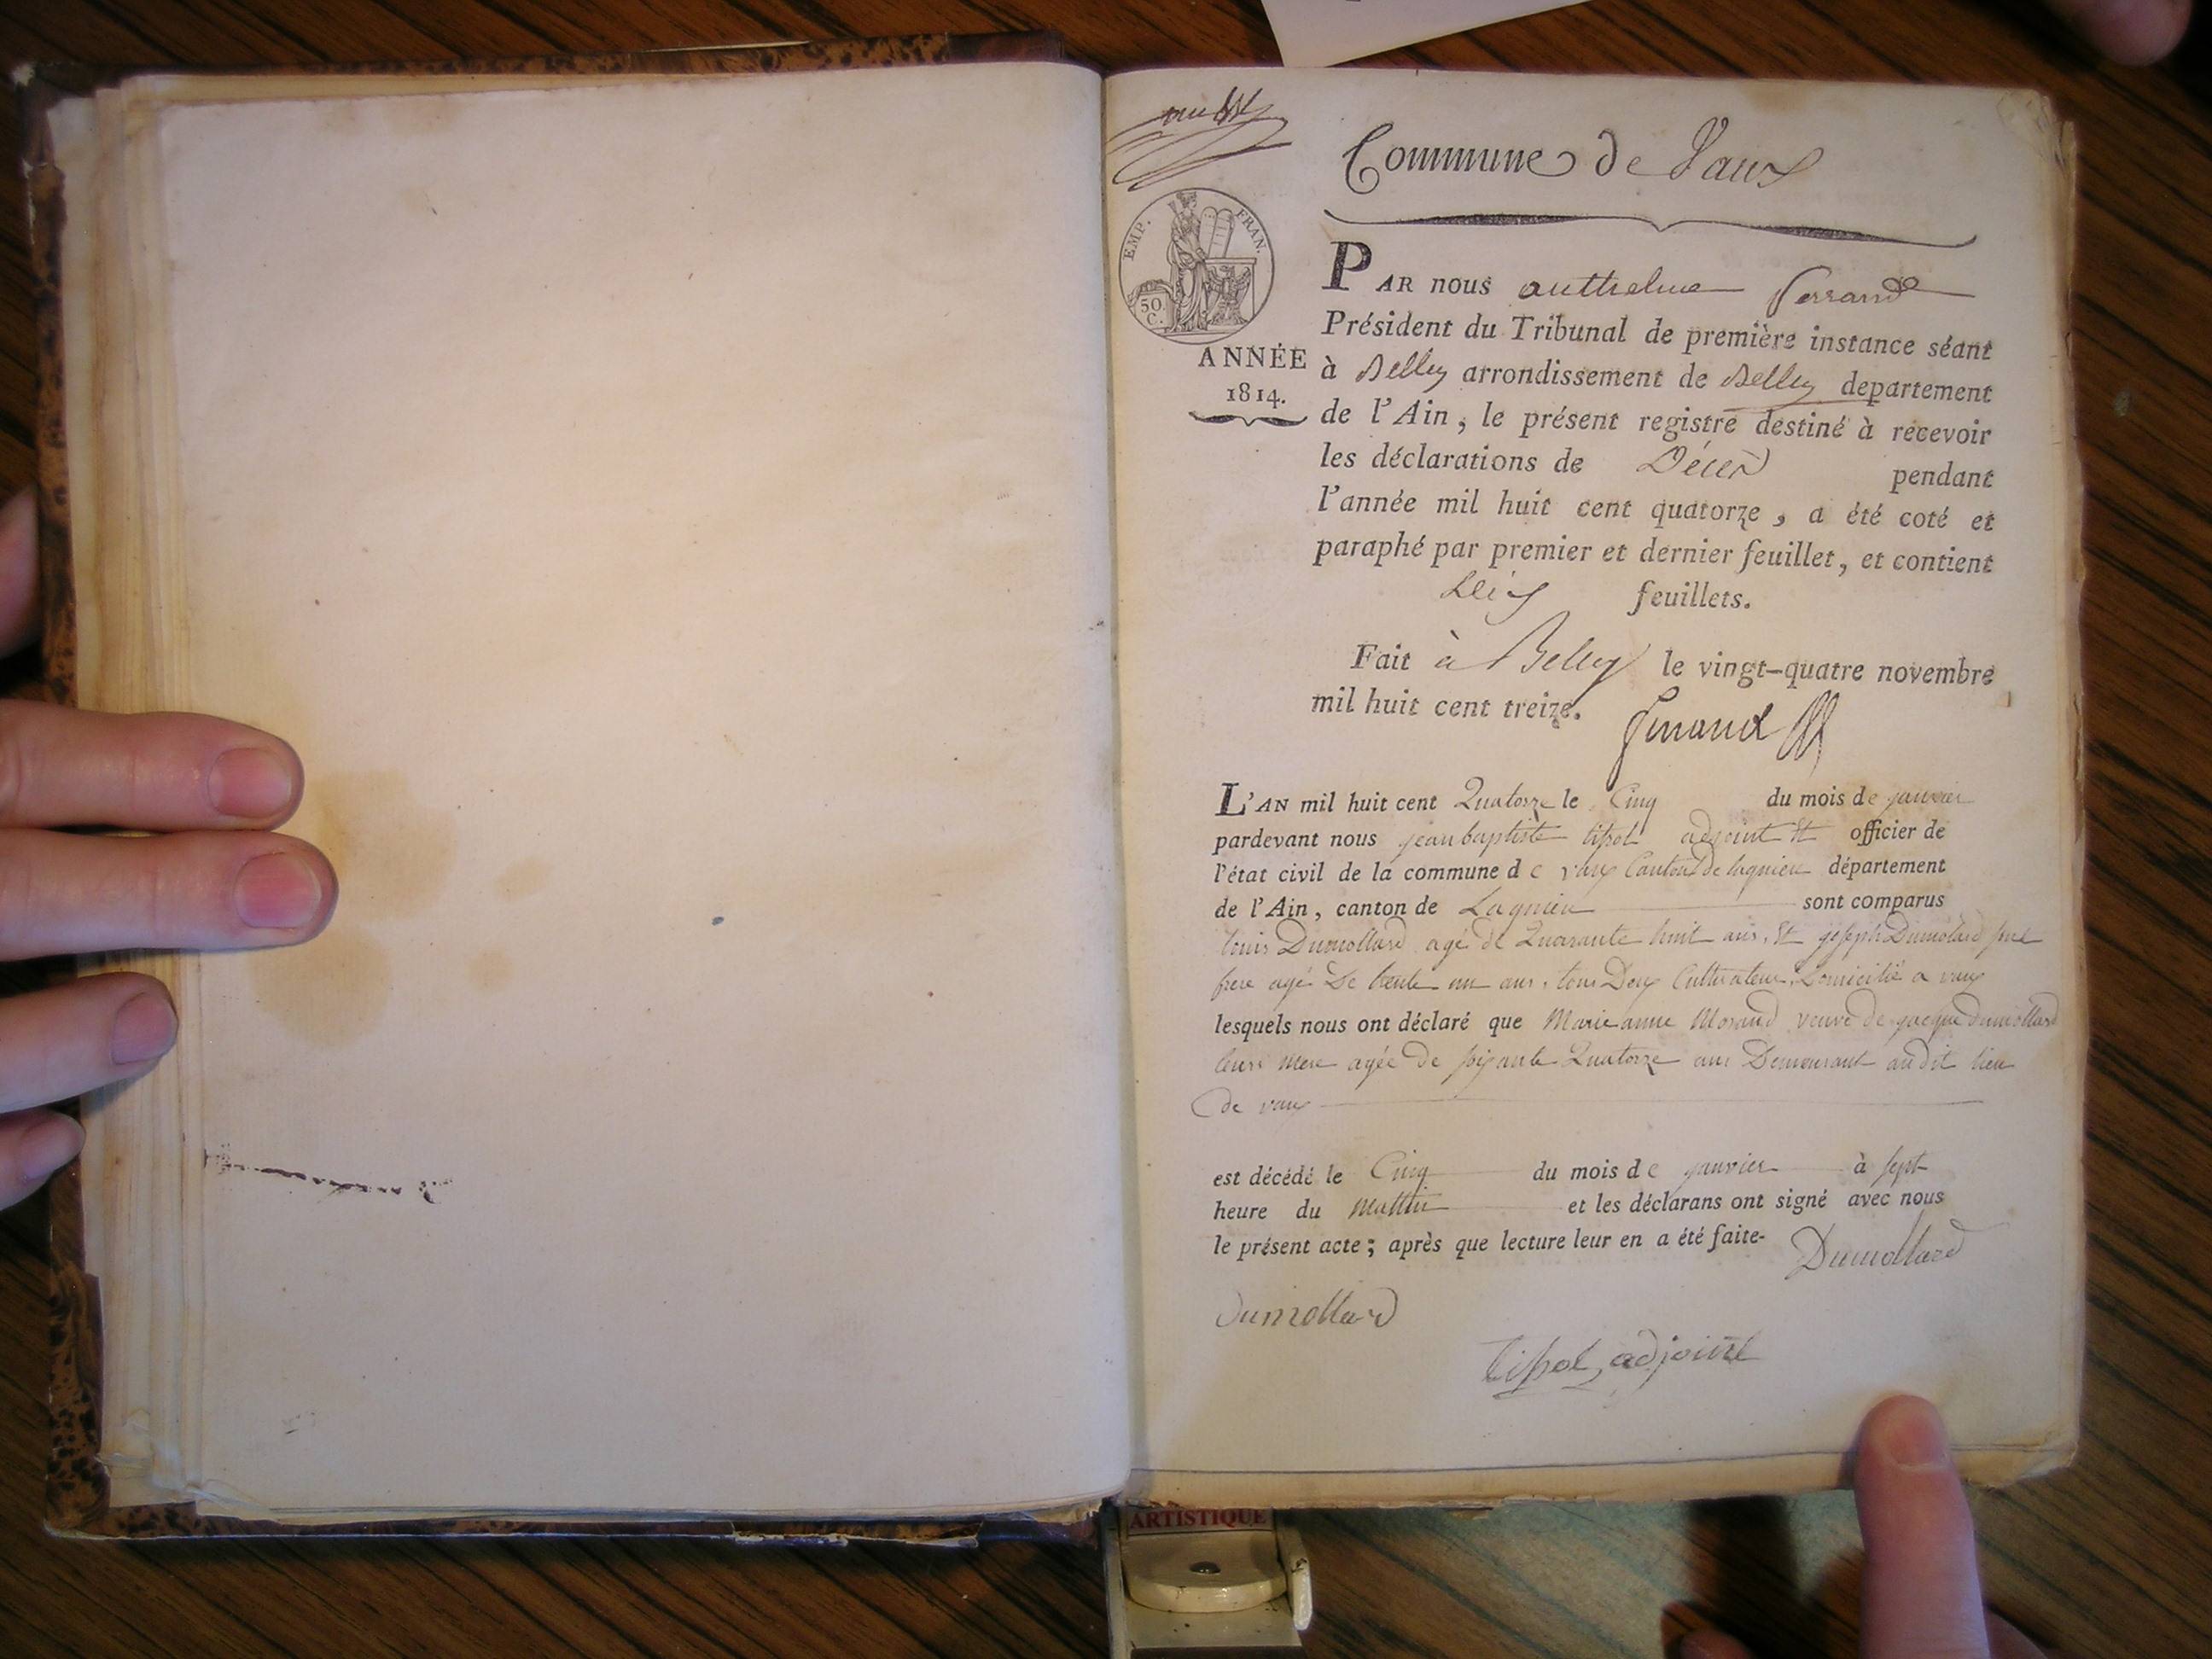 Commune de Vaux
EMP. FRAN.
50 C.
ANNÉE
1814.
PAR nous anthelme Ferrand
Président du Tribunal de première instance séant
à Belley arrondissement de Belley departement
de l'Ain, le présent registre destiné à recevoir
les déclarations de Décès pendant
l'année mil huit cent quatorze, a été coté et
paraphé par premier et dernier feuillet, et contient
feuillets.
Fait à Belley le vingt-quatre novembre
mil huit cent treize.
L'AN mil huit cent Quatorze le Cinq du mois de janvier
pardevant nous jean baptiste tissot adjoint Et officier de
l'état civil de la commune de vaux Canton de lagnieu département
de l'Ain, canton de Lagnieu sont comparus
louis Dumollard agé de Quarante huit ans, Et joseph Dumolard
frere agé De trente un ans, tous Deux Cultivateur, Domicilié a vaux
lesquels nous ont déclaré que Marie anne Morand veuve de jacque dumollard
leurs mere agée De soixante Quatorze ans Demeurant audit lieu
de vaux
est décédé le Cinq du mois de janvier à sept
heure du Mattin et les déclarans ont signé avec nous
le présent acte; après que lecture leur en a été faite-
Dumollard
dumollard
tissot, adjoint
ARTISTIQUE